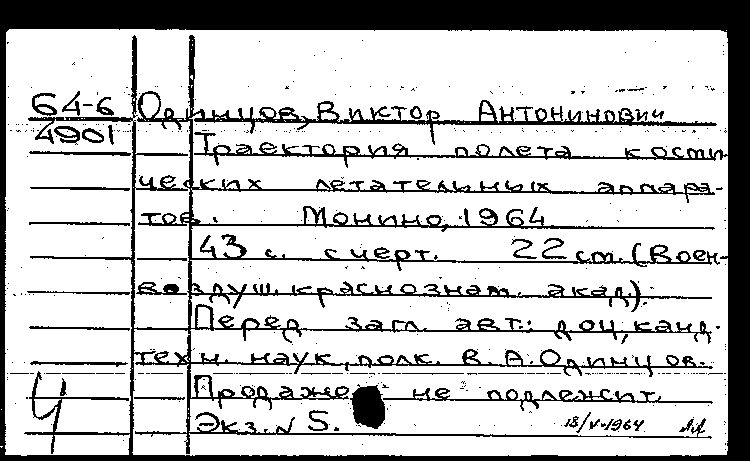 64-6 Одинцов, Виктор Антонинович
4901 Траектория полета косми
ческих летательных аппара-
тов. Монино, 1964
43 с. с черт. 22 см. (Воен-
воздуш. краснознам. акад).
Перед загл. авт.: доц, канд.
техн. наук, полк. В. А. Одинцов.
Продаже не подлежит.
Ч Экз. № 5. 18/V-1964